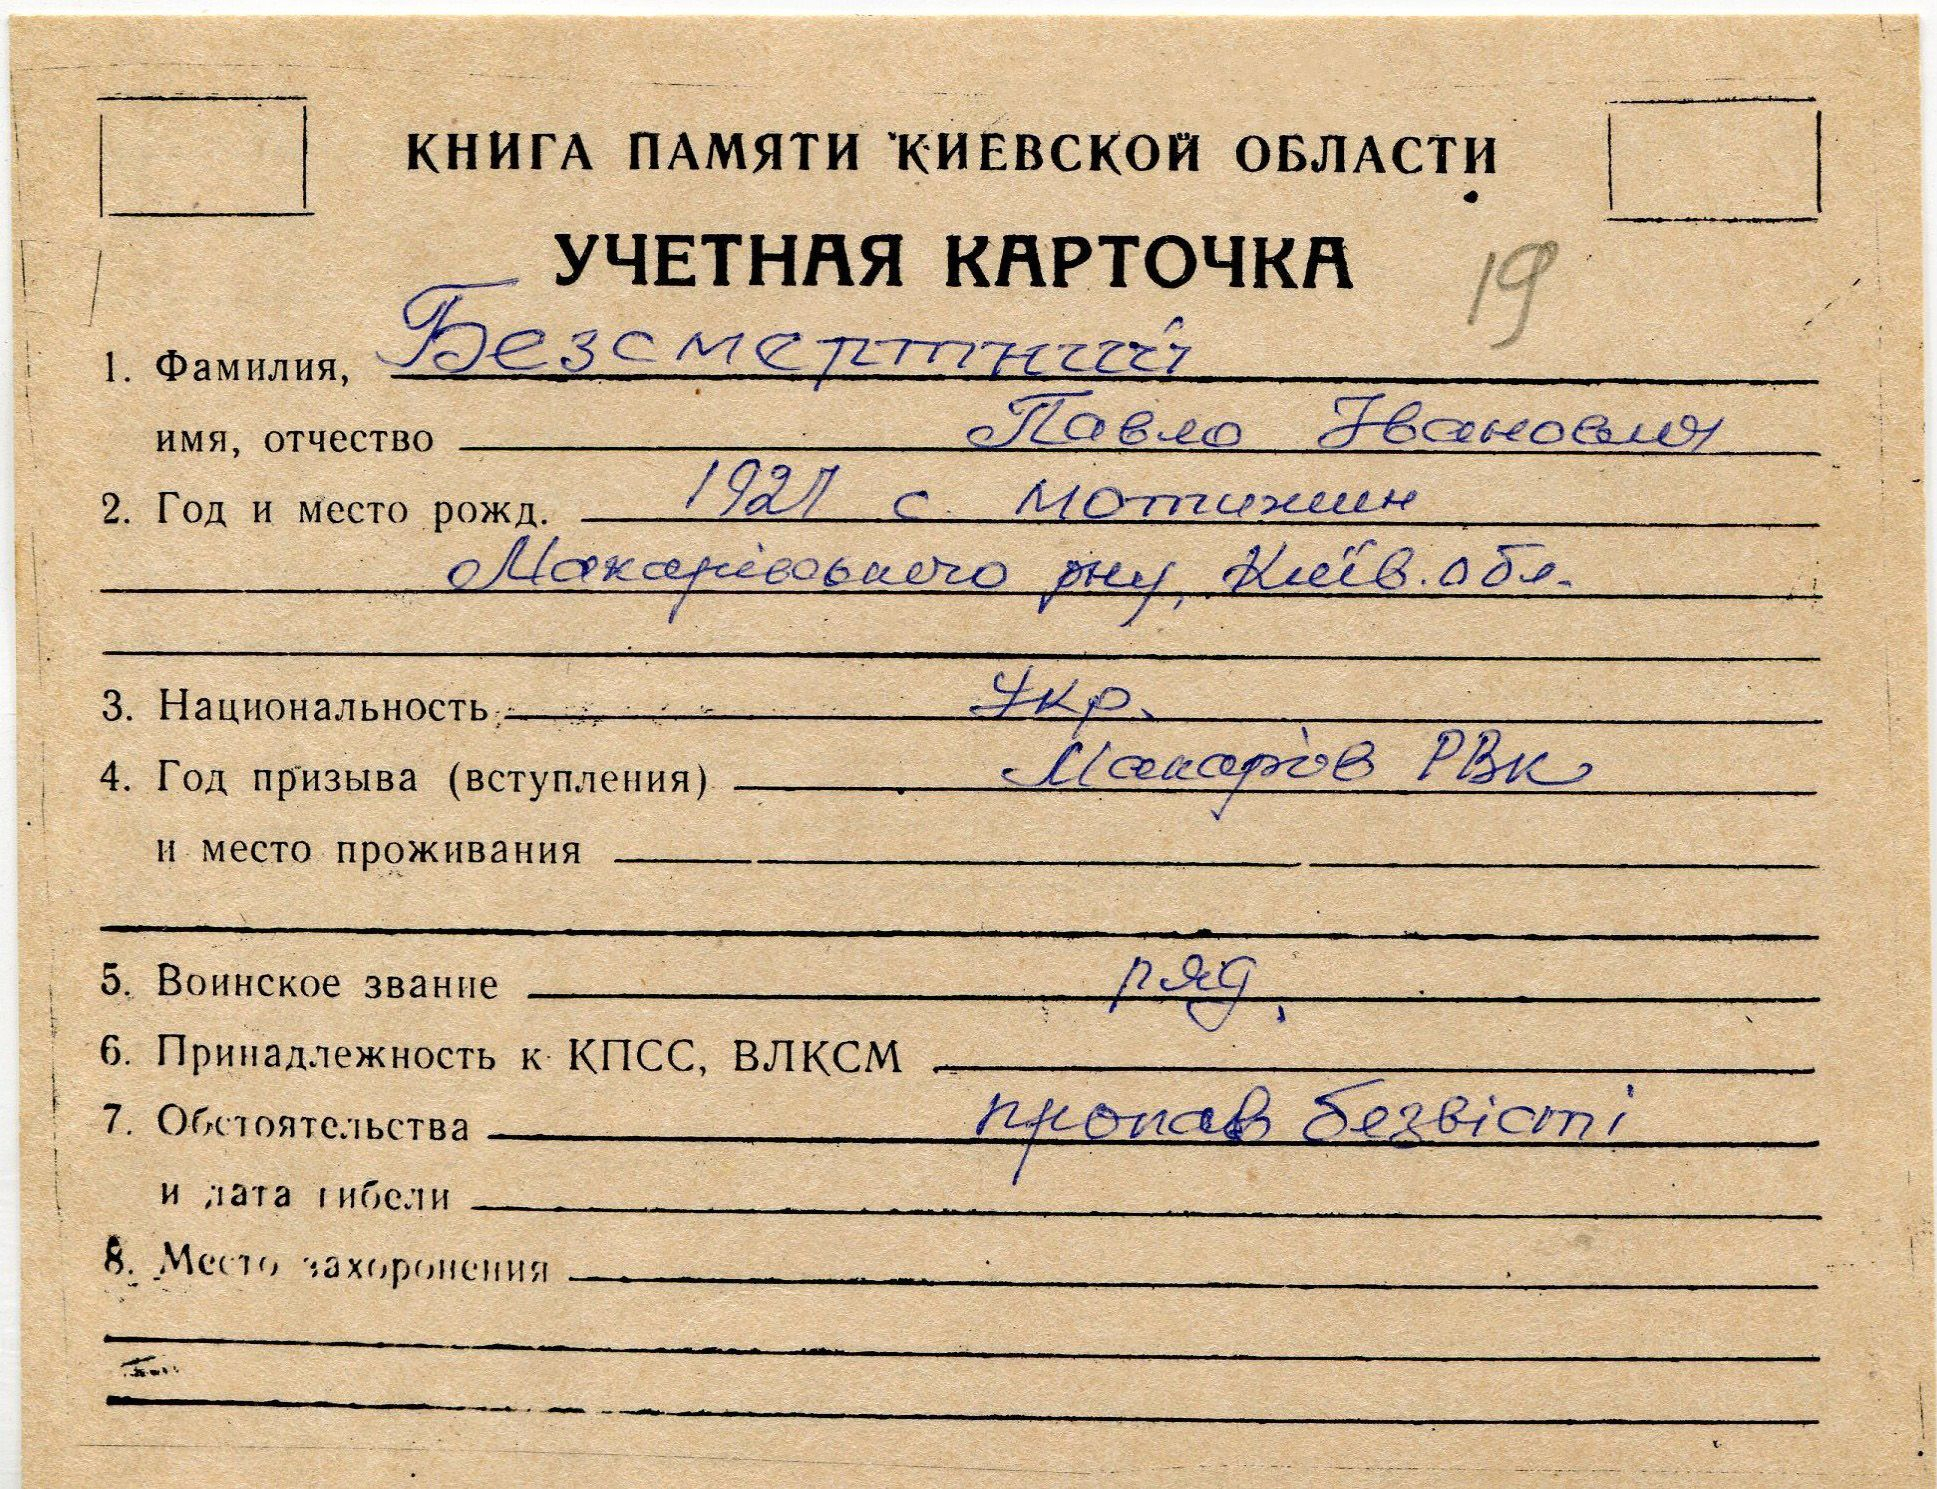 КНИГА ПАМЯТИ КИЕВСКОЙ ОБЛАСТИ
УЧЕТНАЯ КАРТОЧКА 19
1. Фамилия, Безсмертний
имя, отчество Павло Іванович
2. Год и место рожд. 1927 с. Мотижин
Макарівського рну, Київ. обл.
3. Национальность Укр.
4. Год призыва (вступления) Макарів РВК
и место проживания
5. Воинское звание ряд.
6. Принадлежность к КПСС, ВЛКСМ
7. Обстоятельства пропав безвісті
и дата гибели
8. Место захоронения